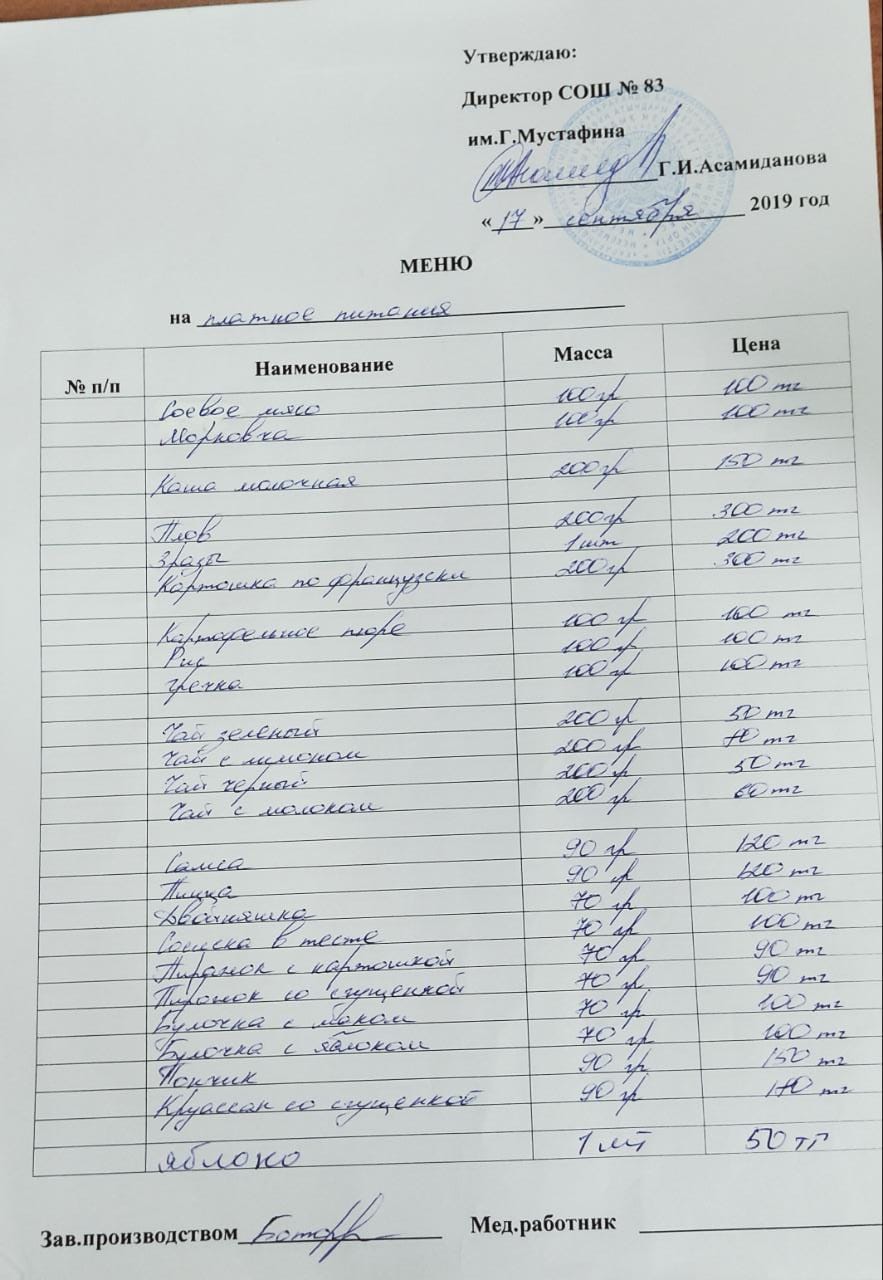 Утверждаю:
Директор СОШ № 83
им.Г.Мустафина
Г.И.Асамиданова
« 17 » сентября 2019 год
МЕНЮ
на платное питания
№ п/п Наименование Масса Цена
Соевое мясо 100 гр 100 тг
Морковча 100 гр 100 тг
Каша молочная 200 гр 150 тг
Плов 200 гр 300 тг
Зразы 1 шт 200 тг
Картошка по французски 200 гр 300 тг
Картофельное пюре 100 гр 100 тг
Рис 100 гр 100 тг
гречка 100 гр 100 тг
Чай зеленый 200 гр 50 тг
Чай с лимоном 200 гр 70 тг
Чай черный 200 гр 50 тг
Чай с молоком 200 гр 60 тг
Самса 90 гр 120 тг
Пицца 90 гр 120 тг
Двойняшка 70 гр 100 тг
Сосиска в тесте 70 гр 100 тг
Пирожок с картошкой 70 гр 90 тг
Пирожок со сгущенкой 70 гр 90 тг
Булочка с маком 70 гр 100 тг
Булочка с яблоком 70 гр 100 тг
Пончик 90 гр 150 тг
Круассан со сгущенкой 90 гр 170 тг
яблоко 1 шт 50 тг
Зав.производством Мед.работник